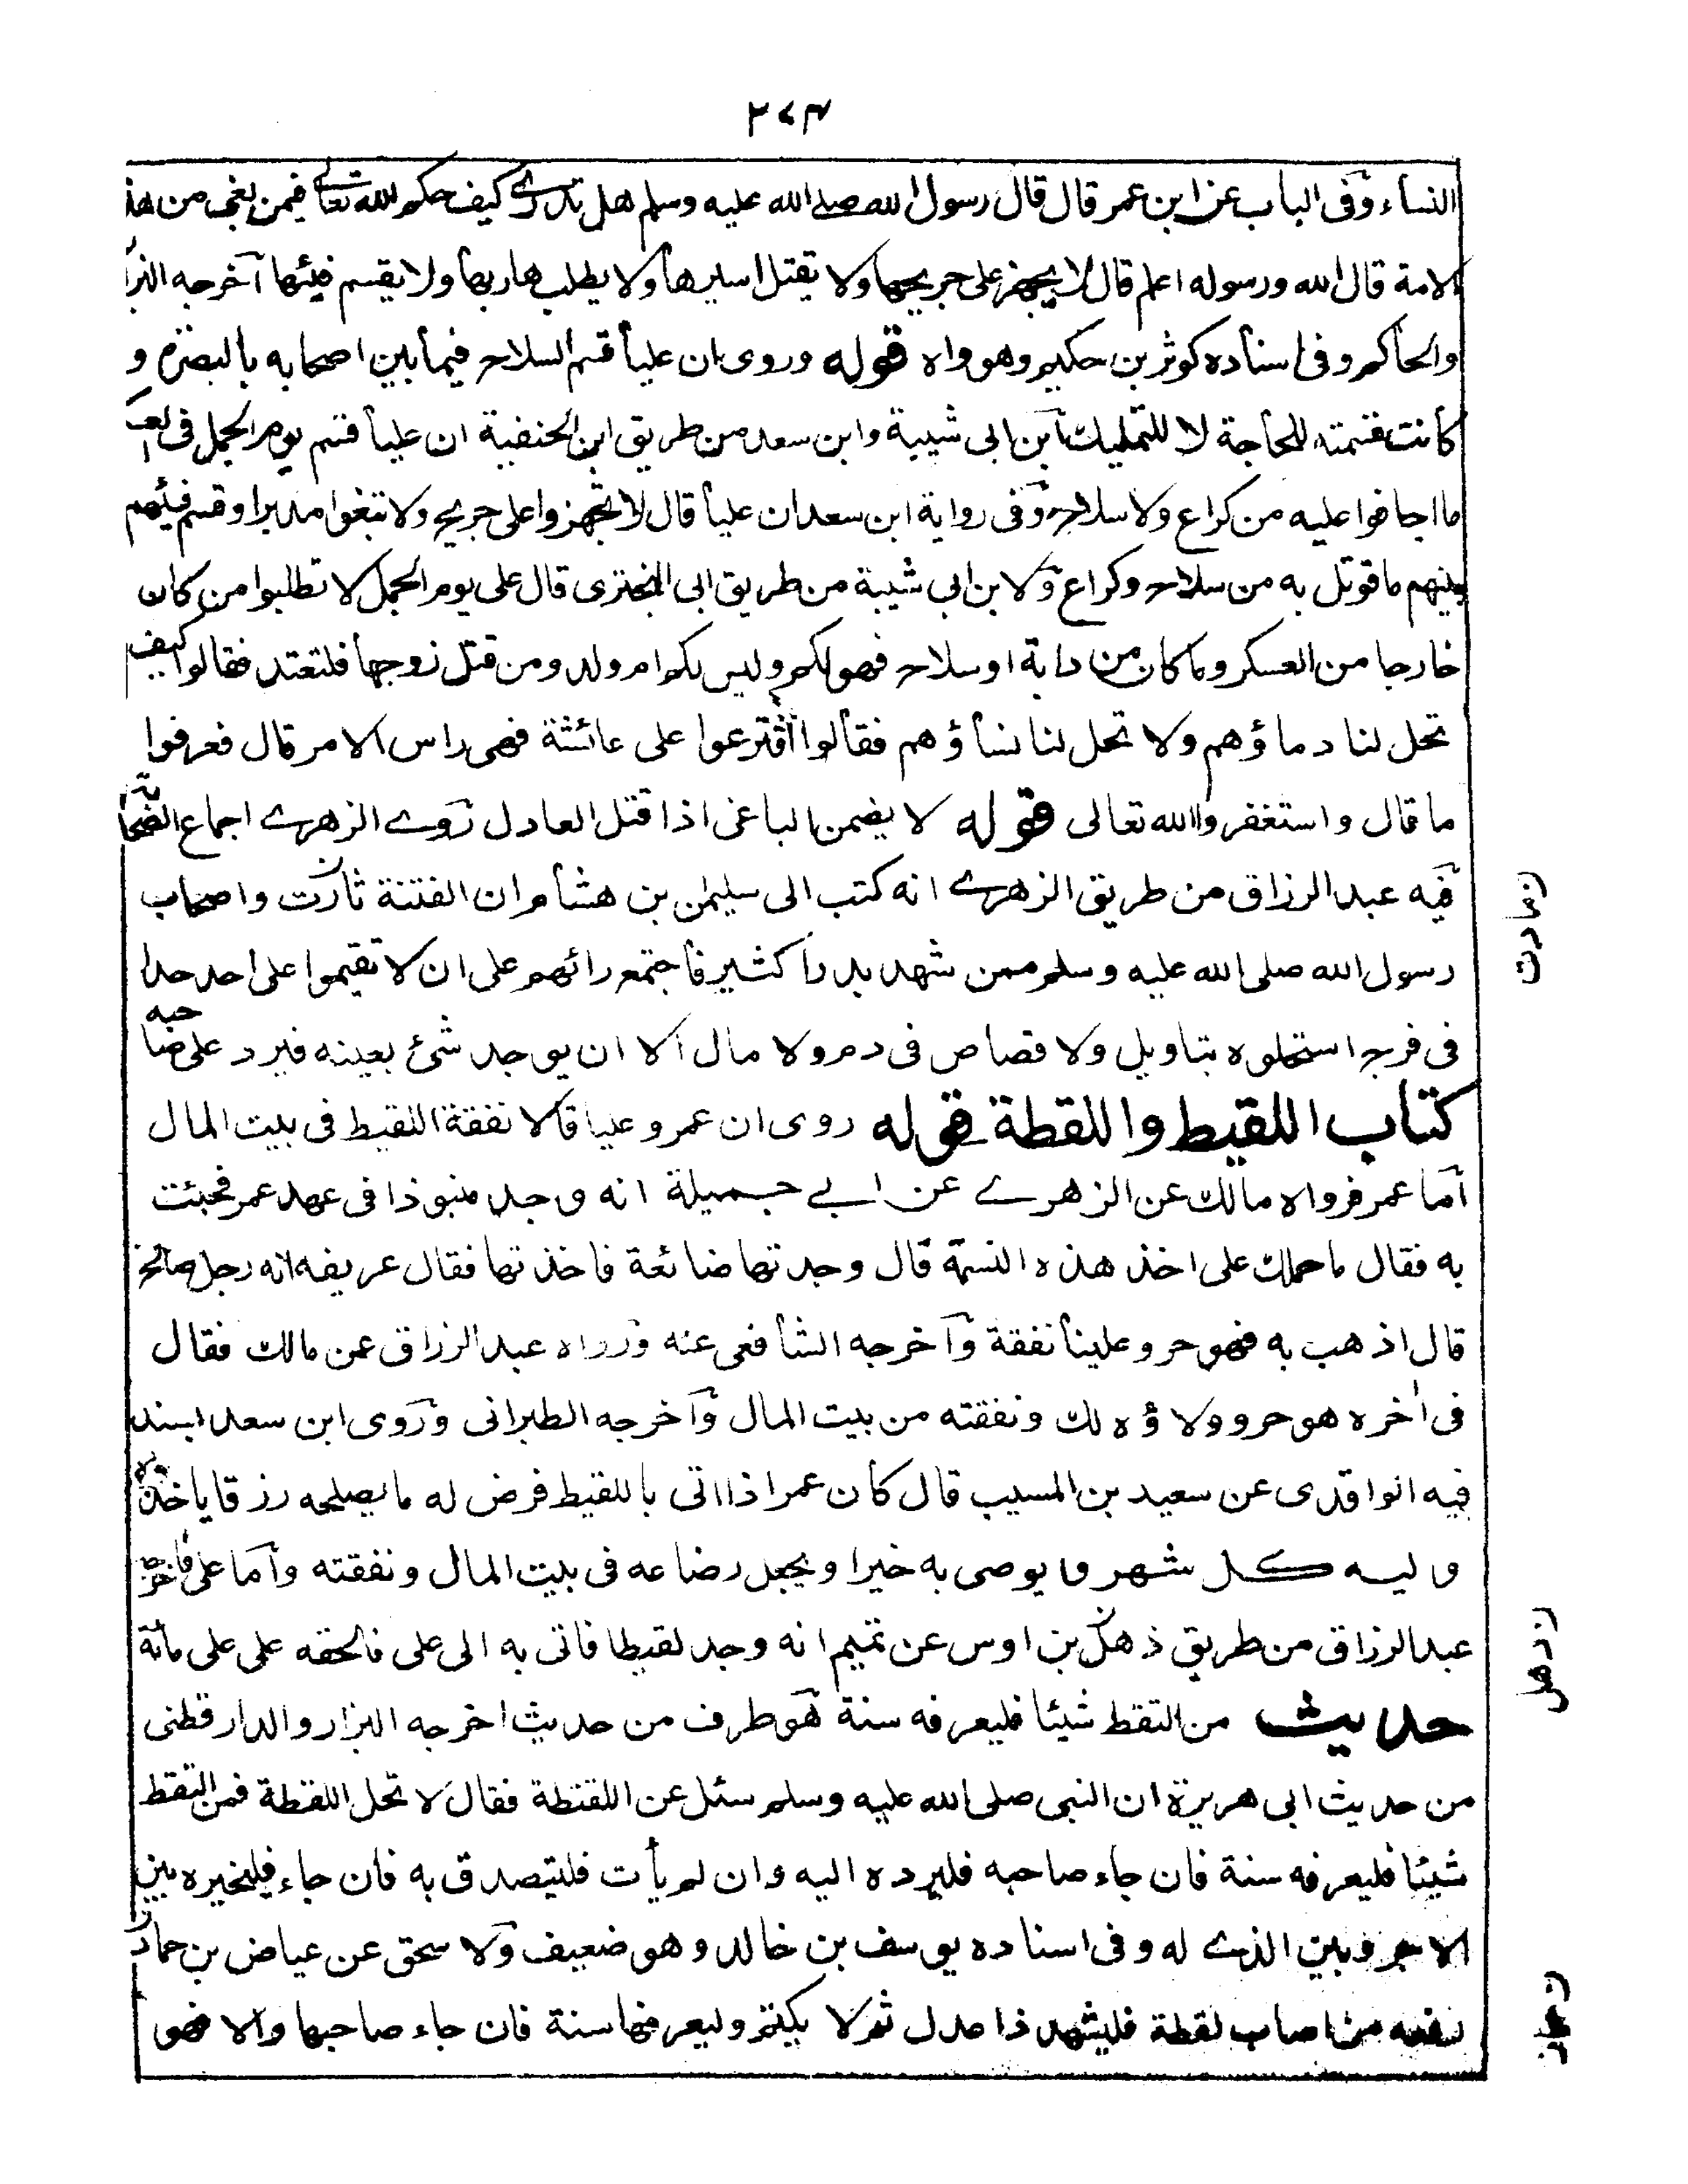 ٢٧٤
النساء وفى الباب عن ابن عمر قال قال رسول الله صلى الله عليه وسلم هل تدرى كيف حكم الله تعالى فيمن بغى من هذ
الامة قال الله ورسوله اعلم قال لا يجهز على جريحها ولا يقتل اسيرها ولا يطلب هاربها ولا يقسم فيئها آخرجه البزا
والحاكم وفى اسناده كوثر بن حكيم وهو واه قوله وروى ان عليا قسم السلاح فيما بين اصحابه بالبصرة و
كانت قسمته للحاجة لا للتمليك ابن ابى شيبة وابن سعد من طريق ابن الحنفية ان عليا قسم يوم الجمل فى
ما اجافوا عليه من كراع ولا سلاح وفى رواية ابن سعد ان عليا قال لا تجهزوا على جريح ولا تتبغوا مدبرا وقسم فيئهم
بينهم ما قوتل به من سلاح وكراع ولابن ابى شيبة من طريق ابى البخترى قال على يوم الجمل لا تطلبوا من كان
خارجا من العسكر وما كان من دابة او سلاح فهو لكم وليس لكم ام ولد ومن قتل زوجها فلتعتد فقالوا كيف
تحل لنا دماؤهم ولا تحل لنا نساؤهم فقالوا أقترعوا على عائشة فهى راس الامر قال فعرفوا
ما قال واستغفروا الله تعالى قوله لا يضمن الباغى اذا قتل العادل روى الزهرى اجماع الصحابة
فيه عبد الرزاق من طريق الزهرى انه كتب الى سليمن بن هشام ان الفتنة ثارت واصحاب
رسول الله صلى الله عليه وسلم ممن شهد بدرا كثير فاجتمع رائهم على ان لا تقيموا على احد حدا
فى فرج استحلوه بتاويل ولا قصاص فى دم ولا مال الا ان يوجد شئ بعينه فيرد على صاحبه
كتاب اللقيط واللقطة قوله روى ان عمر وعليا قالا نفقة اللقيط فى بيت المال
آما عمر فرواه مالك عن الزهرى عن ابى جميلة انه وجد منبوذا فى عهد عمر فجئت
به فقال ما حملك على اخذ هذه النسمة قال وجدتها ضائعة فاخذتها فقال عريفه انه رجل صالح
قال اذهب به فهو حر وعلينا نفقة وآخرجه الشافعى عنه ورواه عبد الرزاق عن مالك فقال
فى أخره هو حر وولاؤه لك ونفقته من بيت المال وآخرجه الطبرانى وروى ابن سعد بسند
فيه الواقدى عن سعيد بن المسيب قال كان عمر اذا اتى باللقيط فرض له ما يصلحه رزقا ياخذه
وليه كل شهر ويوصى به خيرا ويجعل رضاعه فى بيت المال ونفقته وآما على فاخرجه
عبد الرزاق من طريق ذهل بن اوس عن تميم انه وجد لقيطا فاتى به الى على فالحقه على على مائة
حديث من التقط شيئا فليعرفه سنة هو طرف من حديث اخرجه البزار والدار قطنى
من حديث ابى هريرة ان النبى صلى الله عليه وسلم سئل عن اللقطة فقال لا تحل اللقطة فمن التقط
شيئا فليعرفه سنة فان جاء صاحبه فليرده اليه وان لم يأت فليتصدق به فان جاء فليخيره بين
الاجر وبين الذى له وفى اسناده يوسف بن خالد وهو ضعيف ولاسحق عن عياض بن حمار
رفعه من اصاب لقطة فليشهد ذا عدل ثم لا يكتم وليعرفها سنة فان جاء صاحبها والا فهو